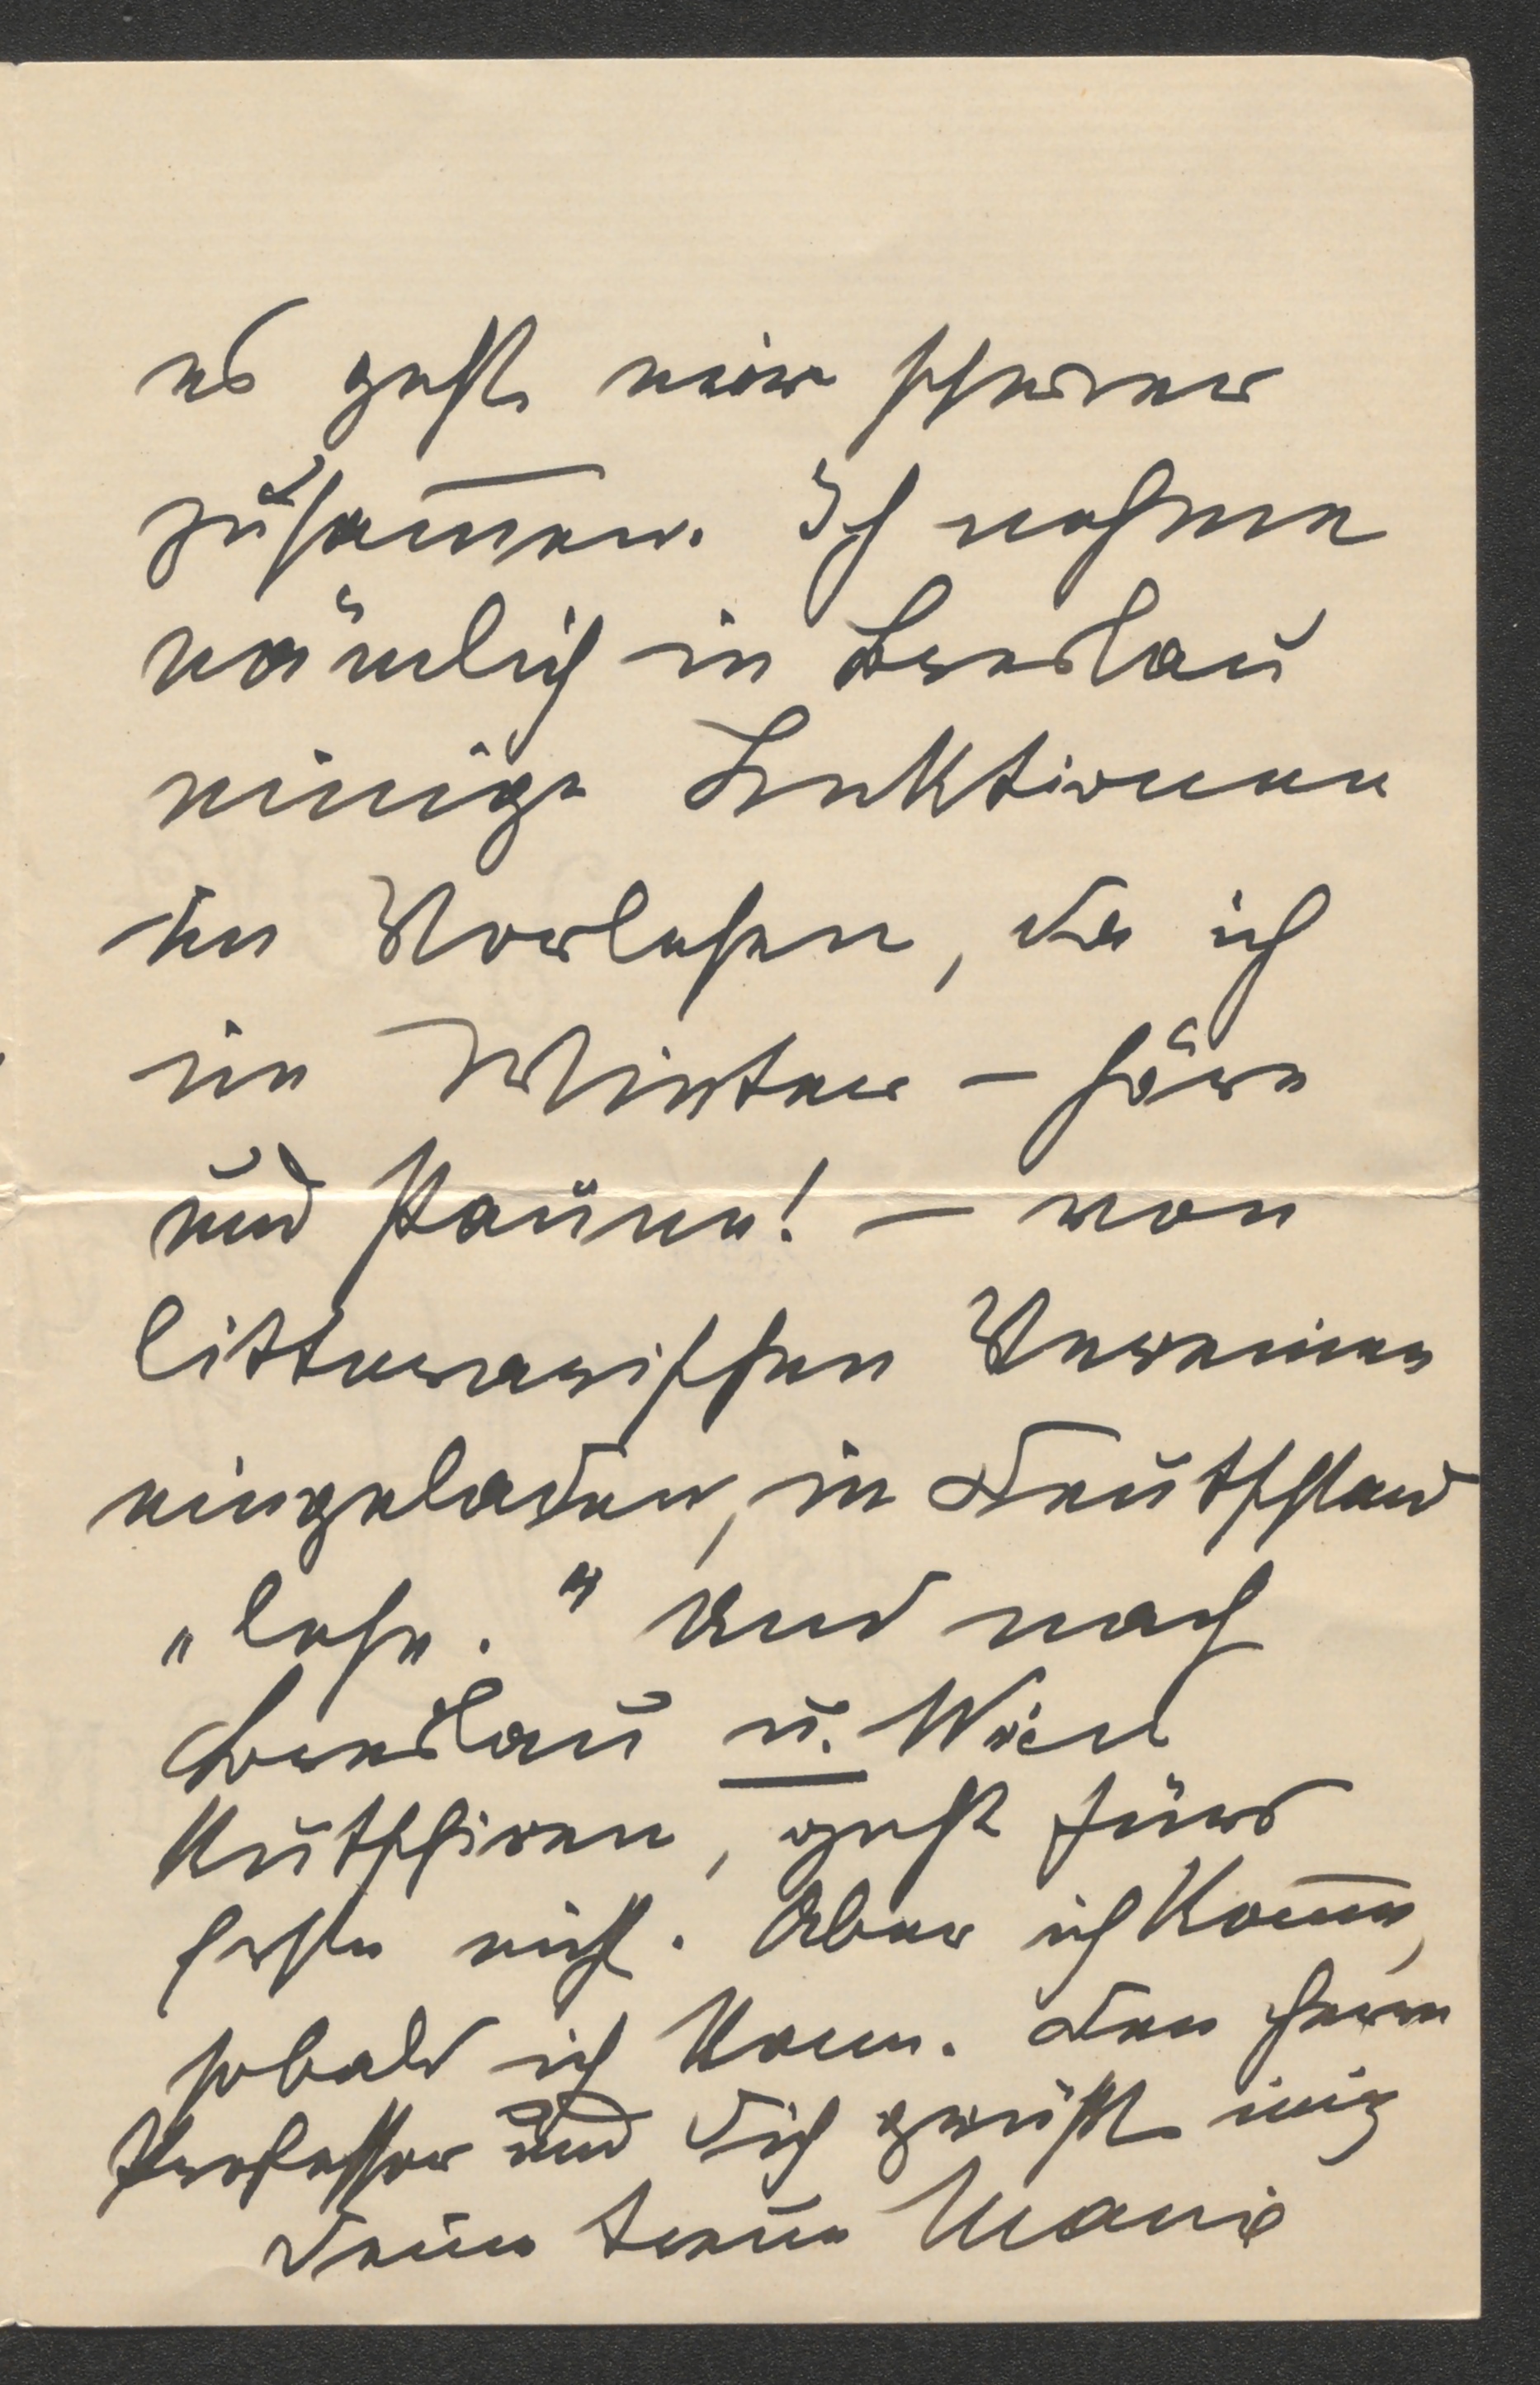 es geht mir schwer
zusam̅en. Ich nehme
nämlich in Breslau
einige Lecktionen
im Vorlesen, da ich
im Winter – höre
und staune! – von
litterarischen Vereinen
eingeladen, in Deutschland
„lese." Und nach
Breslau u. Wien
kutschiren, geht fürs
Erste nicht. Aber ich kom̅e,
sobald ich kann. Den Herrn
Professor und Dich grüßt innig
Deine treue Marie